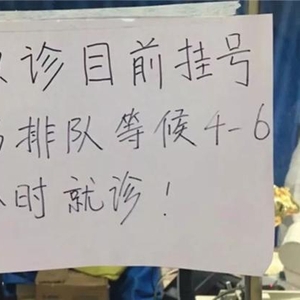 诊目前挂号
排队等候4-6
时就诊！